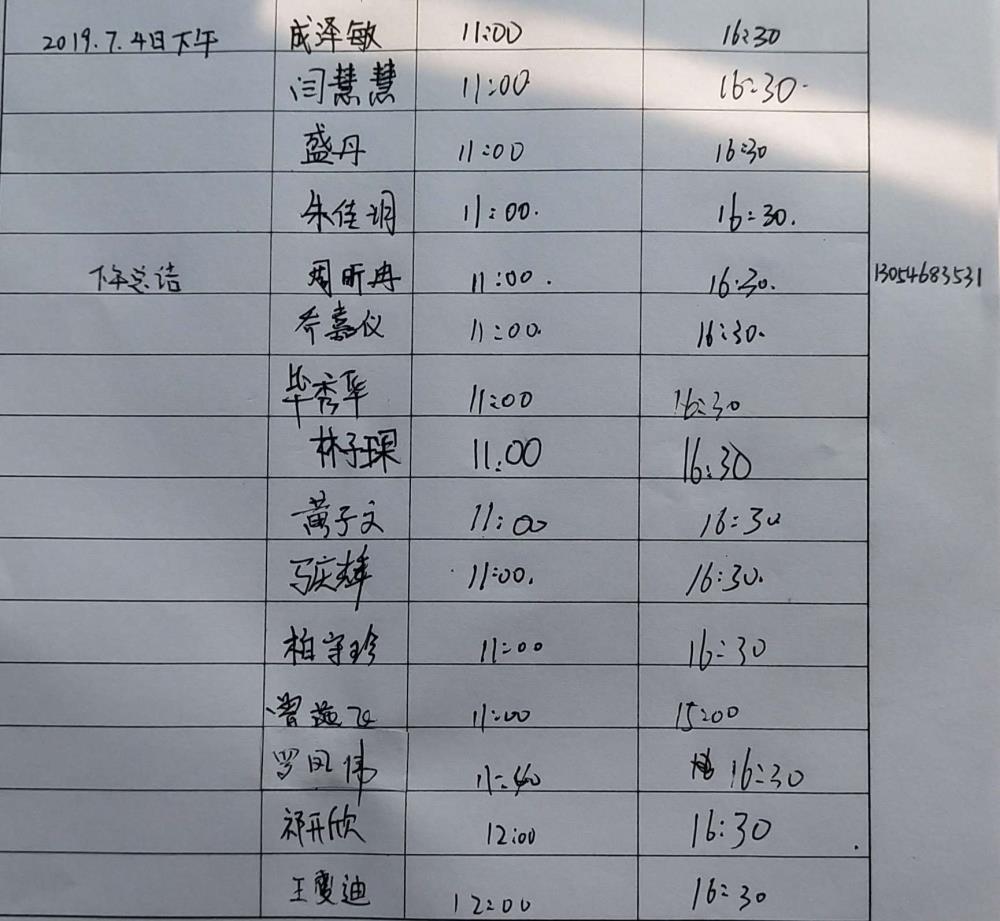 2019.7.4日下午 成泽敏 11:00 16:30
闫慧慧 11:00 16:30
盛丹 11:00 16:30
朱佳玥 11:00. 16:30.
下午总结 周昕冉 11:00. 16:30. 13054683531
乔嘉仪 11:00. 16:30.
毕秀华 11:00 16:30
林子琛 11:00 16:30
黄子文 11:00 16:30
马庆辉 11:00. 16:30.
柏宇珍 11:00 16:30
曾 飞 11:00 15:00
罗凤伟 11:40 16:30
祁开欣 12:00 16:30
王雯迪 12:00 16:30